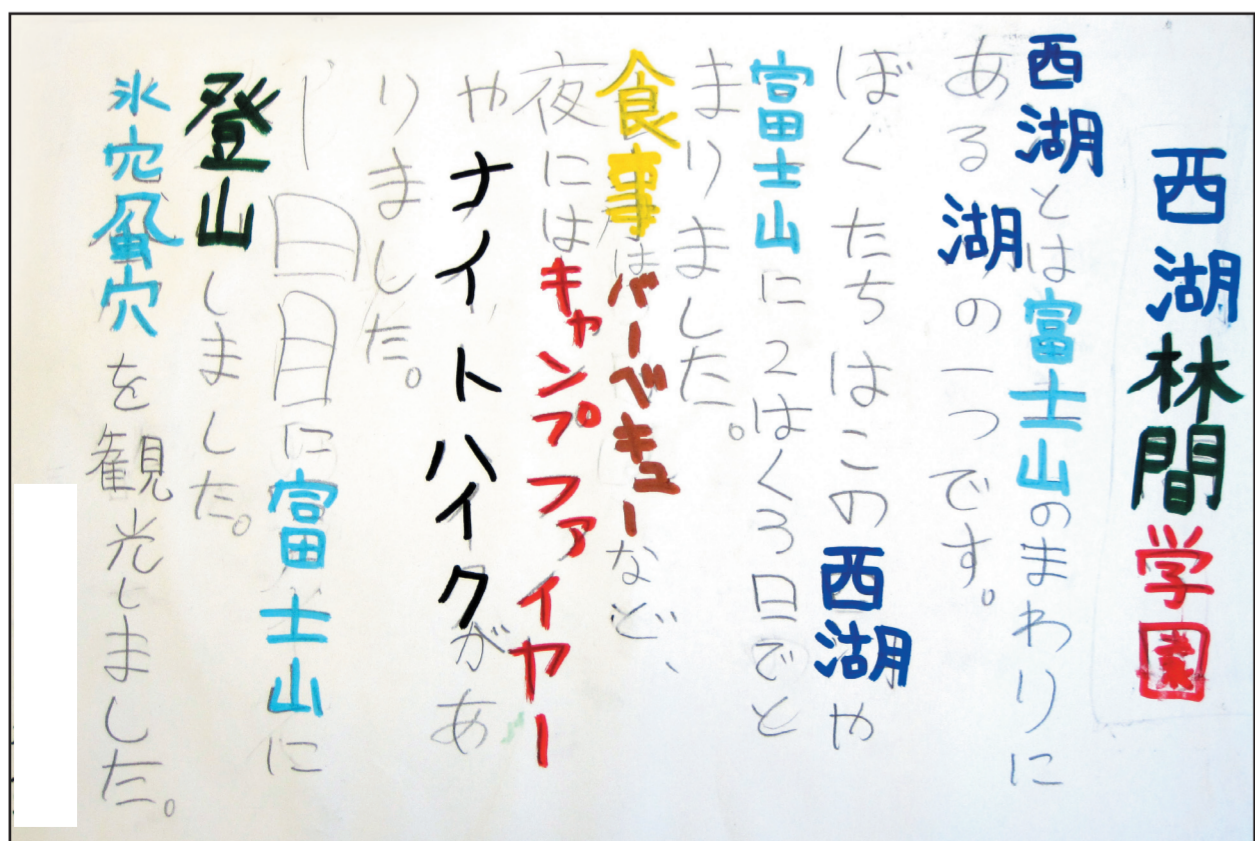 西湖林間学園
西湖とは富士山のまわりに
ある湖の一つです。
ぼくたちはこの西湖や
富士山に2はく3日でと
まりました。
食事はバーベキューなど、
夜にはキャンプファイヤー
やナイトハイクがあ
りました。
一日目に富士山に
登山しました。
氷穴風穴を観光しました。